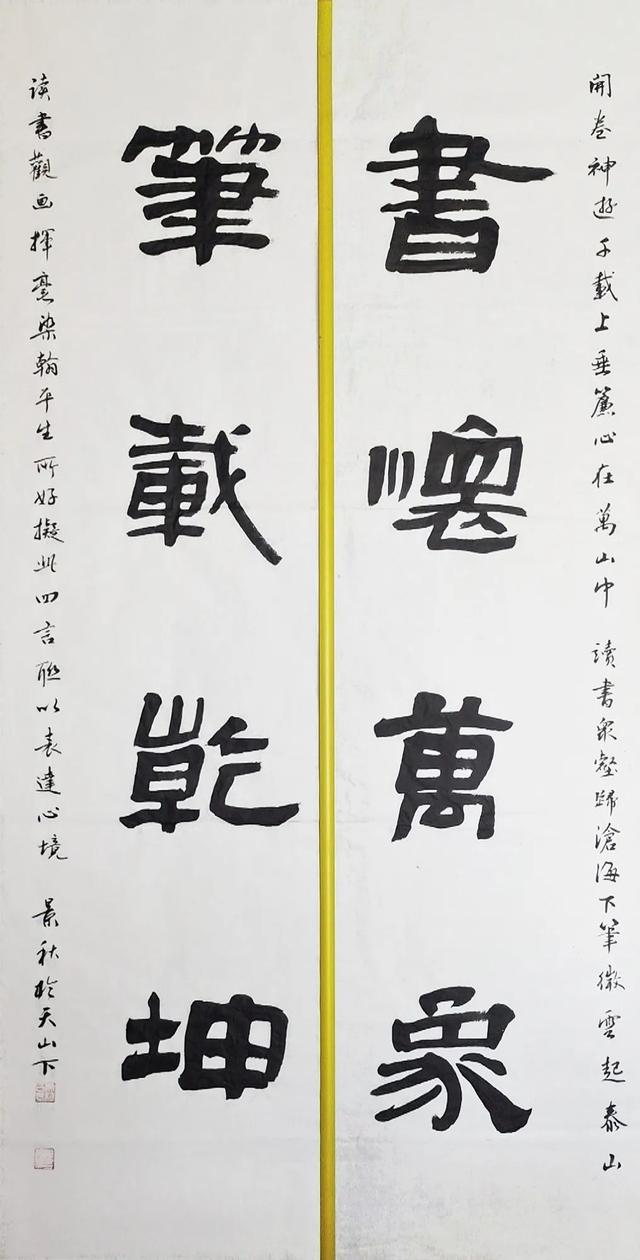 開卷神遊千載上垂簾心在萬山中 讀書衆壑歸滄海下筆微雲起泰山
書懷萬象
筆載乾坤
读書觀画揮毫染翰平生所好擬此四言聯以表達心境 景秋於天山下